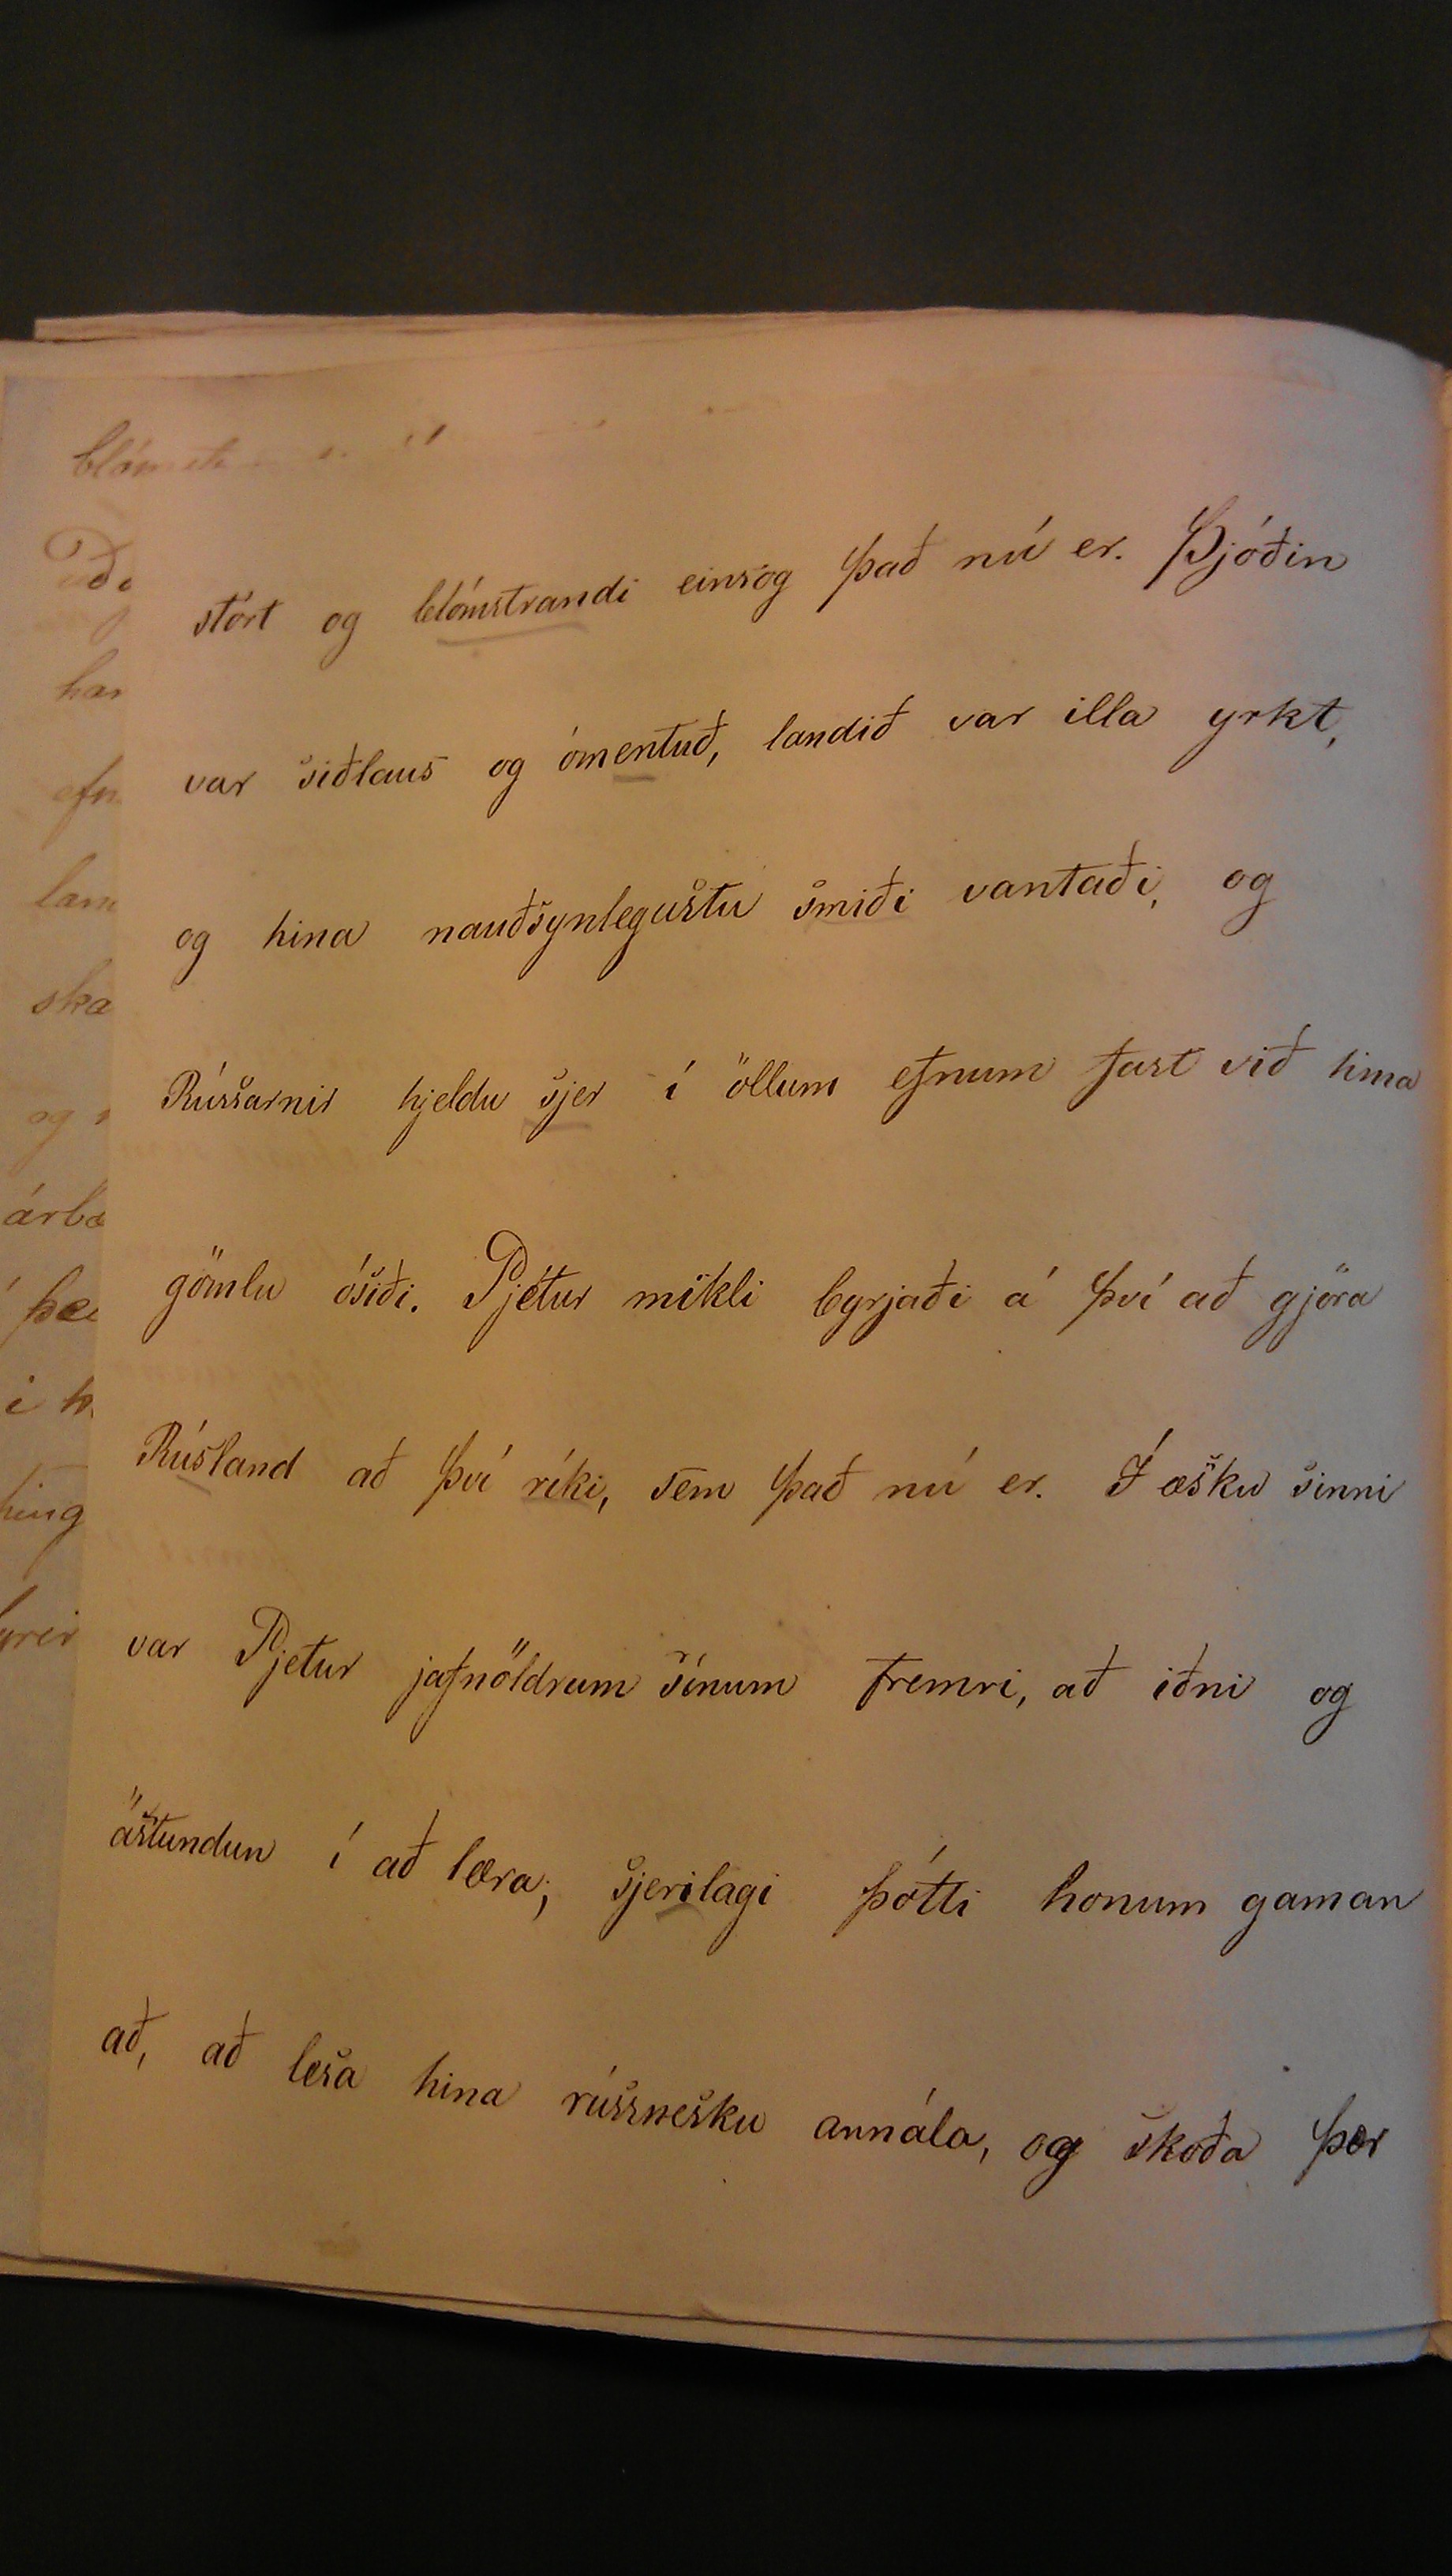 stórt og blómstrandi einsog það nú er. Þjóðin
var siðlaus og ómentuð, landið var illa yrkt,
og hina nauðsynlegustu smiði vantaði, og
Rússarnir hjeldu sjer í öllum efnum fast við hina
gömlu ósiði. Pjetur mikli byrjaði á því að gjöra
Rúsland að því ríki, sem það nú er. Í æsku sinni
var Pjetur jafnöldrum sínum fremri, að iðni og
ástundun í að læra; sjerilagi þótti honum gaman
að, að lesa hina rússnesku annála, og skoða þær